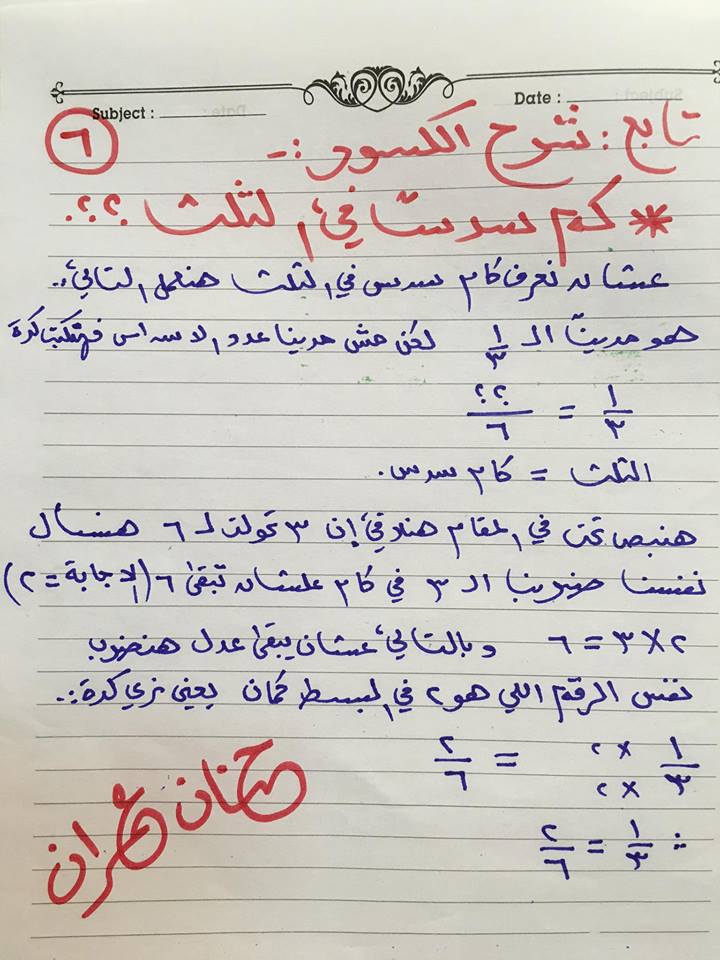 Subject :
Date :
٦
تابع : شرح الكسور :-
* كم سدسًا في الثلث ؟؟.
عشان نعرف كام سدس في الثلث هنعمل التالي :.
هو مدينا الـ ١/٣ لكن مش مدينا عدد الاسداس فهتكتب كدة
١/٣ = ؟؟/٦
الثلث = كام سدس.
هنبص تحت في المقام هنلاقي إن ٣ تحولت لـ ٦ هنسأل
نفسنا ضربنا الـ ٣ في كام علشان تبقى ٦ (الاجابة = ٢)
٢ × ٣ = ٦ وبالتالي عشان يبقى عدل هنضرب
نفس الرقم اللي هو ٢ في البسط كمان يعني نزي كدة :.
١/٣ ×٢ ×٢ = ٢/٦
∴ ١/٣ = ٢/٦
حنان عمران